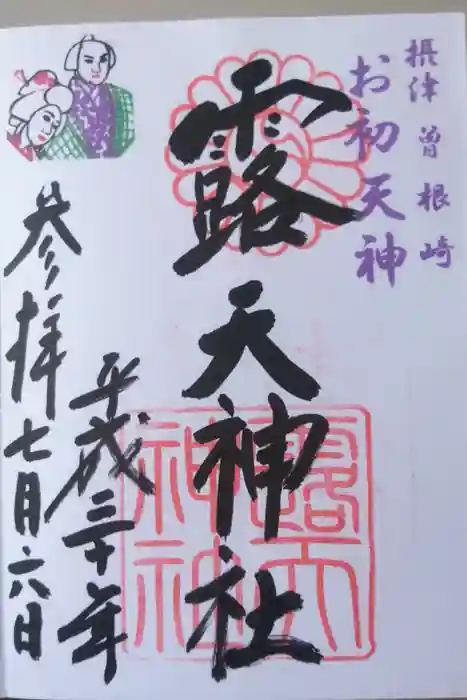 摂津 曽根崎
お初天神
露天神社
平成三十年
参拝 七月六日
露天
神社